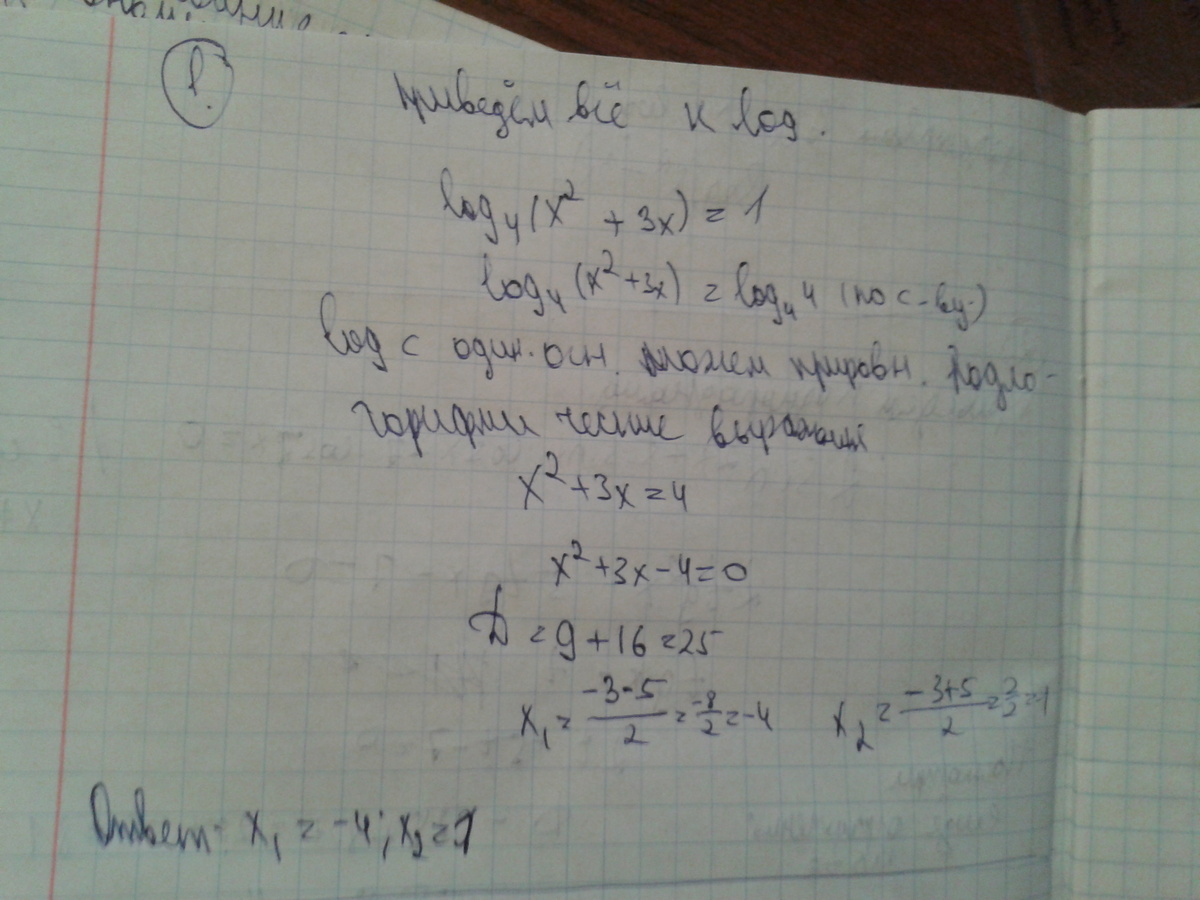 1.
Приведём всё к log.
log₄(x² + 3x) = 1
log₄(x²+3x) = log₄4 (по с-ву)
log с один. осн. можем приравн. подло-
гарифмические выражения
x²+3x=4
x²+3x-4=0
D=9+16=25
x₁=\frac{-3-5}{2}=\frac{-8}{2}=-4 x₂=\frac{-3+5}{2}=\frac{2}{2}=1
Ответ: x₁=-4; x₂=1